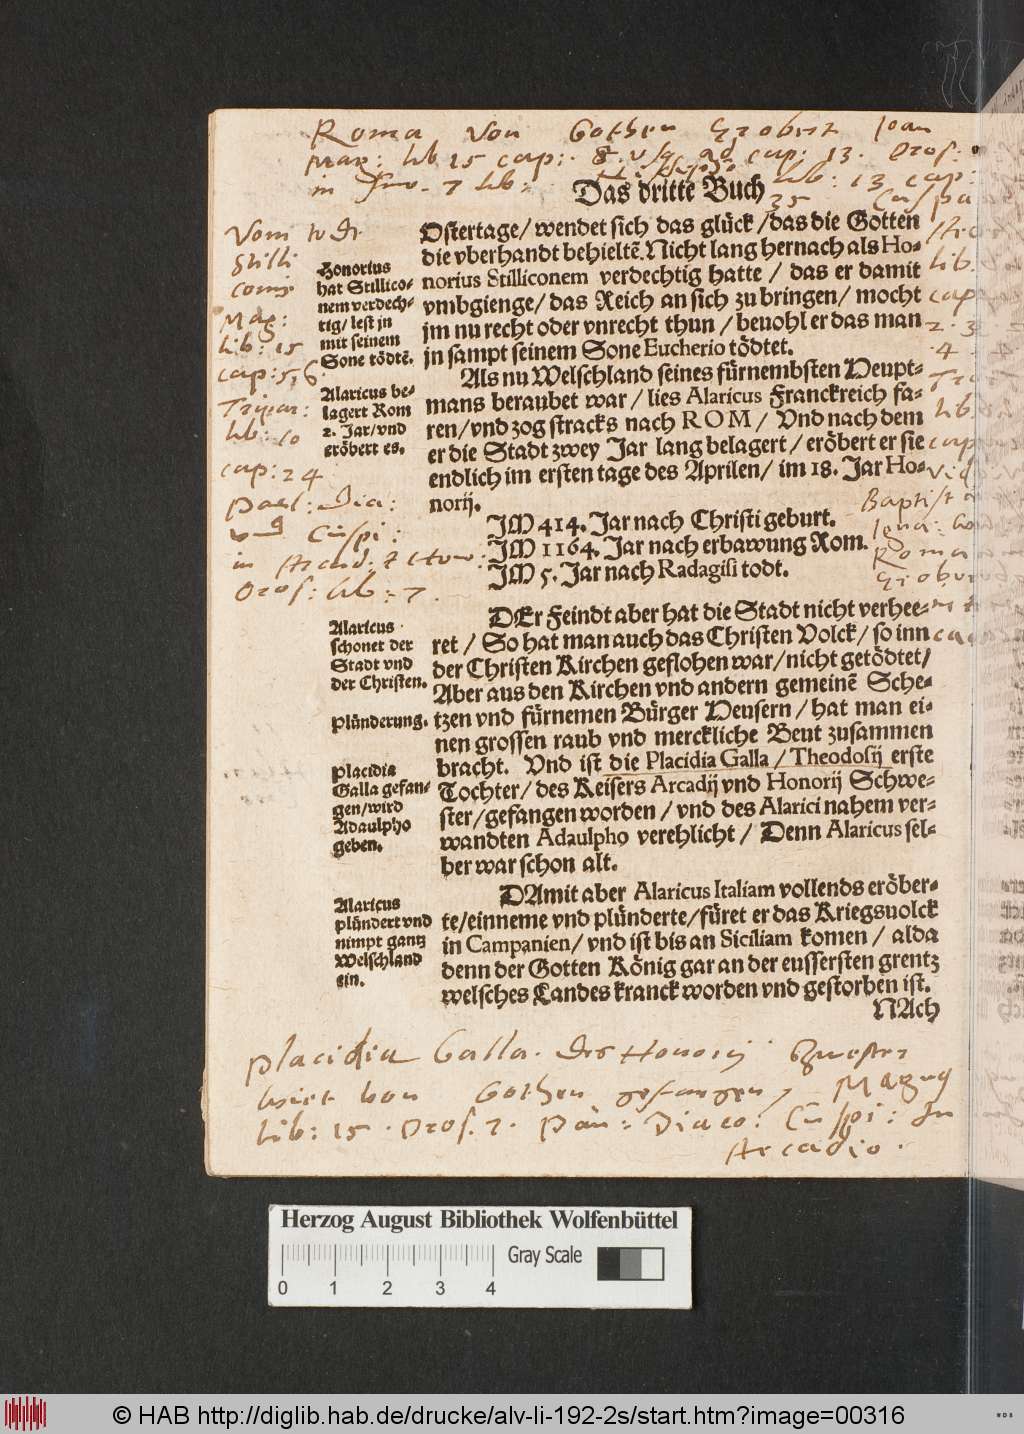 Roma von Gothen Erobert Joan
mag: lib 15 cap: 8. usq ad cap: 13. Oros:
in Hno. 7 lib:
lib: 13 cap:
35
Das dritte Buch
Ostertage/ wendet sich das glück/ das die Gotten
die vberhandt behieltẽ. Nicht lang hernach als Ho-
norius Stilliconem verdechtig hatte / das er damit
vmbgienge/ das Reich an sich zu bringen/ mocht
jm nu recht oder vnrecht thun / beuohl er das man
jn sampt seinem Sone Eucherio tödtet.
Als nu Welschland seines fürnembsten Heupt-
mans beraubet war / lies Alaricus Franckreich fa-
ren/ vnd zog stracks nach ROM / Vnd nach dem
er die Stadt zwey Jar lang belagert/ eröbert er sie
endlich im ersten tage des Aprilen/ im 18. Jar Ho-
norij.
JM 414. Jar nach Christi geburt.
JM 1164. Jar nach erbawung Rom.
JM 5. Jar nach Radagisi todt.
DEr Feindt aber hat die Stadt nicht verhee-
ret / So hat man auch das Christen Volck/ so inn
der Christen Kirchen geflohen war/ nicht getödtet/
Aber aus den Kirchen vnd andern gemeinẽ Sche-
tzen vnd fürnemen Bürger Heusern / hat man ei-
nen grossen raub vnd merckliche Beut zusammen
bracht. Vnd ist die Placidia Galla / Theodosij erste
Tochter/ des Keisers Arcadij vnd Honorij Schwe-
ster/ gefangen worden / vnd des Alarici nahem ver-
wandten Adaulpho verehlicht / Denn Alaricus sel-
ber war schon alt.
DAmit aber Alaricus Italiam vollends eröber-
te/ einneme vnd plünderte/ füret er das Kriegsuolck
in Campanien/ vnd ist bis an Siciliam komen / alda
denn der Gotten König gar an der eussersten grentz
welsches Landes kranck worden vnd gestorben ist.
NAch
Honorius
hat Stillico-
nem verdech-
tig/ lest jn
mit seinem
Sone tödtẽ.
Alaricus be-
lagert Rom
2. Jar/ vnd
eröbert es.
Alaricus
schonet der
Stadt vnd
der Christen.
Plünderung.
Placidia
Galla gefan-
gen/ wird
Adaulpho
geben.
Alaricus
plündert vnd
nimpt gantz
Welschland
ein.
Vom
Stilli
Mag:
lib: 15
cap: 5, 6.
Tripar:
lib: 10
cap: 24
Pael: Dia:
vnd Cuspi:
in Arcad: & Hono:
Oros: lib: 7.
lib.
cap
2. 3.
4. 4.
lib.
Baptist
Roma
Placidia Galla. des Honorij Schwester
wirt von Gothen gefangen, Magnus
lib: 15. Oros. 7. Pau: Diaco. Cuspi: In
Arcadio.
Herzog August Bibliothek Wolfenbüttel
Gray Scale
0 1 2 3 4
© HAB http://diglib.hab.de/drucke/alv-li-192-2s/start.htm?image=00316